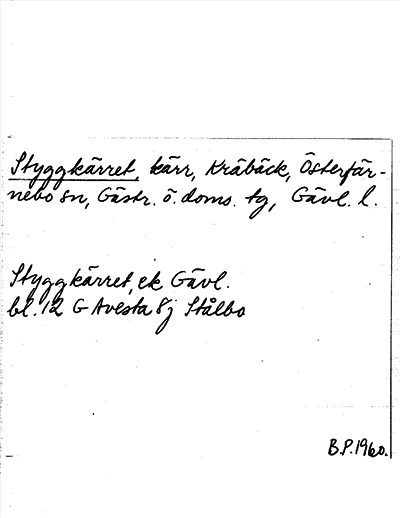 Styggkärret, kärr, Kråbäck, Österfär-
nebo sn, Gästr. ö. doms. tg, Gävl. l.
Styggkärret, ek Gävl.
bl. 12 G Avesta 8j Stålbo
B.P. 1960.